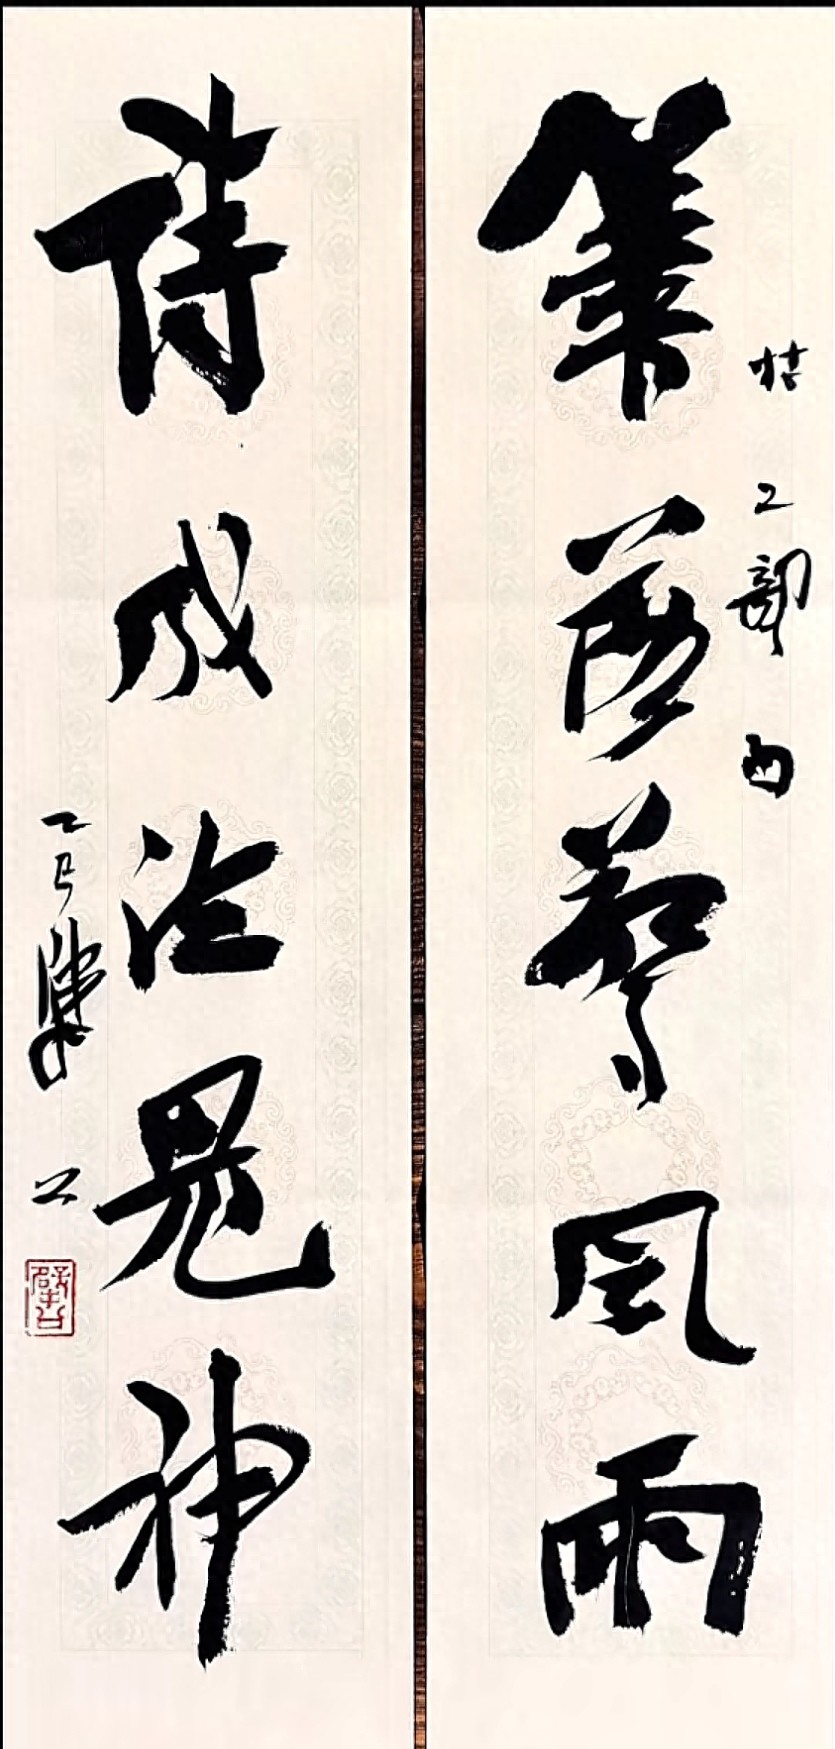 筆落驚風雨
拈工部句
詩成泣鬼神
乙巳